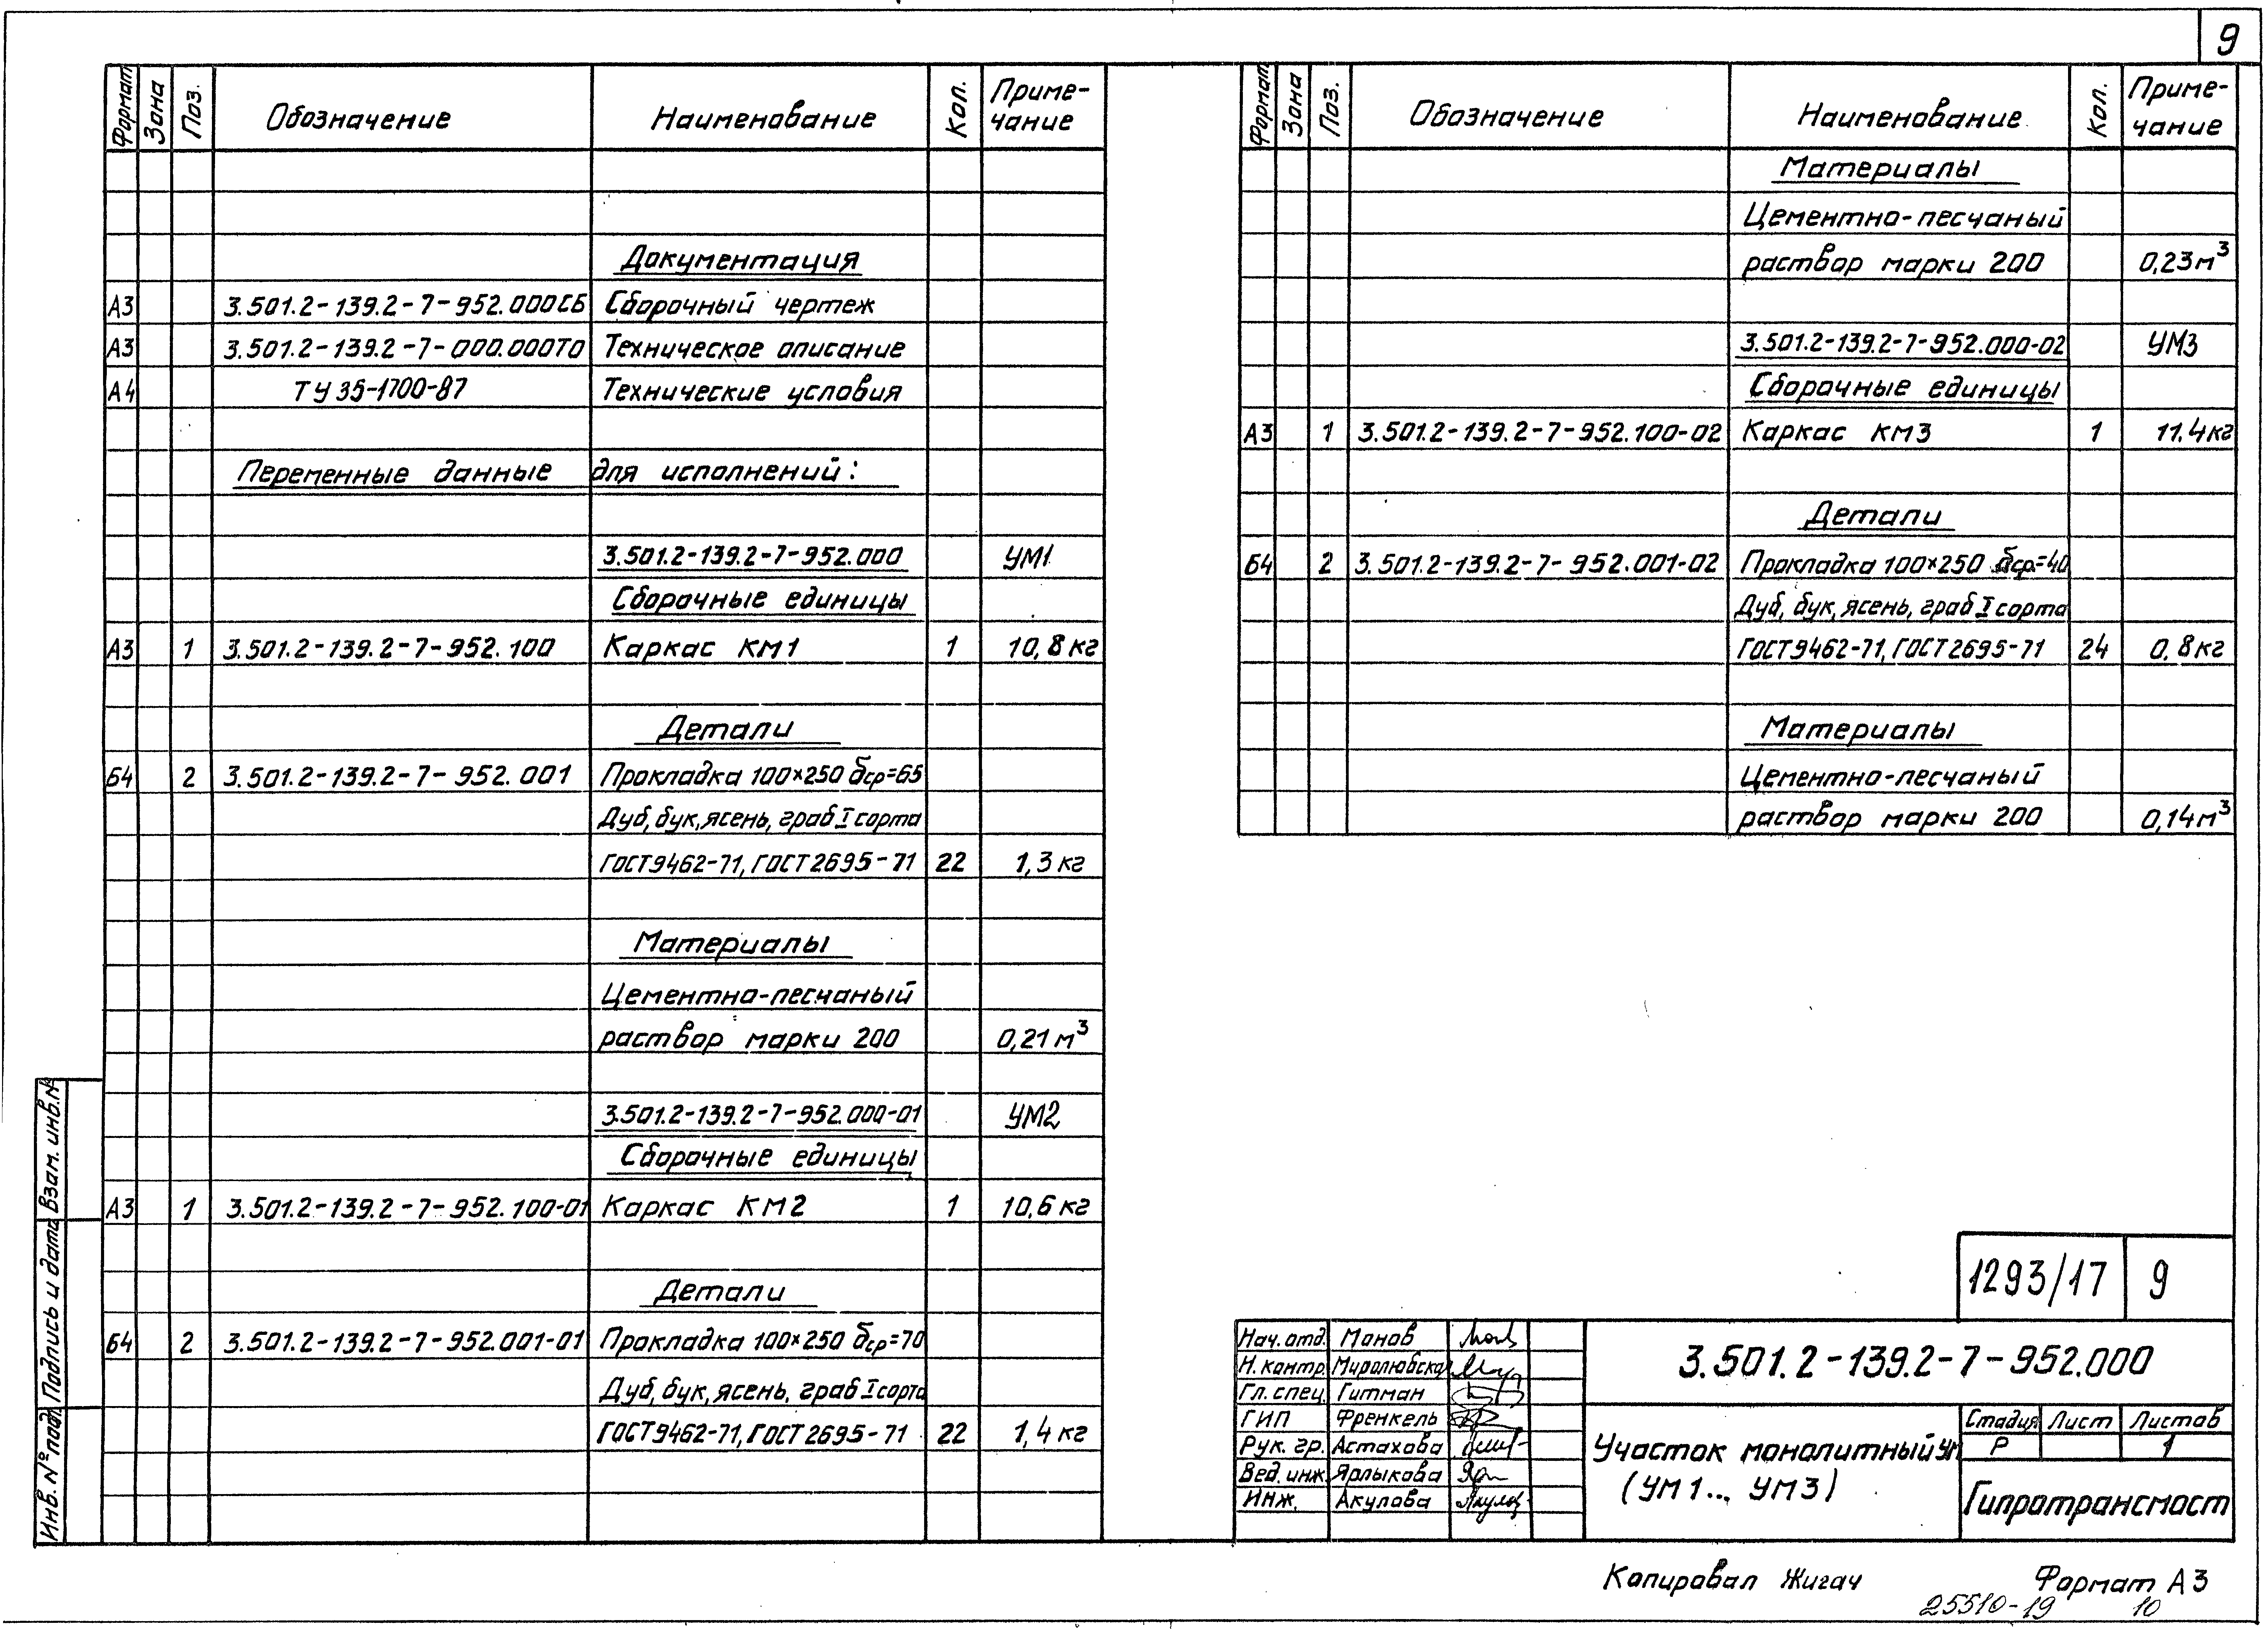 9
Формат Зона Поз. Обозначение Наименование Кол. Приме-чание
Документация
А3 3.501.2-139.2-7-952.000СБ Сборочный чертеж
А3 3.501.2-139.2-7-000.000ТО Техническое описание
А4 ТУ 35-1700-87 Технические условия
Переменные данные для исполнений:
3.501.2-139.2-7-952.000 УМ1
Сборочные единицы
А3 1 3.501.2-139.2-7-952.100 Каркас КМ1 1 10,8 кг
Детали
Б4 2 3.501.2-139.2-7-952.001 Прокладка 100×250 δср=65
Дуб, бук, ясень, граб I сорта
ГОСТ 9462-71, ГОСТ 2695-71 22 1,3 кг
Материалы
Цементно-песчаный
раствор марки 200 0,21 м³
3.501.2-139.2-7-952.000-01 УМ2
Сборочные единицы
А3 1 3.501.2-139.2-7-952.100-01 Каркас КМ2 1 10,6 кг
Детали
Б4 2 3.501.2-139.2-7-952.001-01 Прокладка 100×250 δср=70
Дуб, бук, ясень, граб I сорта
ГОСТ 9462-71, ГОСТ 2695-71 22 1,4 кг
Формат Зона Поз. Обозначение Наименование Кол. Приме-чание
Материалы
Цементно-песчаный
раствор марки 200 0,23 м³
3.501.2-139.2-7-952.000-02 УМ3
Сборочные единицы
А3 1 3.501.2-139.2-7-952.100-02 Каркас КМ3 1 11.4 кг
Детали
Б4 2 3.501.2-139.2-7-952.001-02 Прокладка 100×250 δср=40
Дуб, бук, ясень, граб I сорта
ГОСТ 9462-71, ГОСТ 2695-71 24 0.8 кг
Материалы
Цементно-песчаный
раствор марки 200 0,14 м³
Взам. инв. №
Подпись и дата
Инв. № подл.
1293/17 9
Нач. отд. Монов
Н. контр. Миролювская
Гл. спец. Гитман
ГИП Френкель
Рук. гр. Астахова
Вед. инж. Ярлыкова
Инж. Акулова
3.501.2-139.2-7-952.000
Участок монолитный УМ
(УМ1... УМ3)
Стадия Лист Листов
Р 1
Гипротрансмост
Копировал Жигач Формат А3
25510-19 10